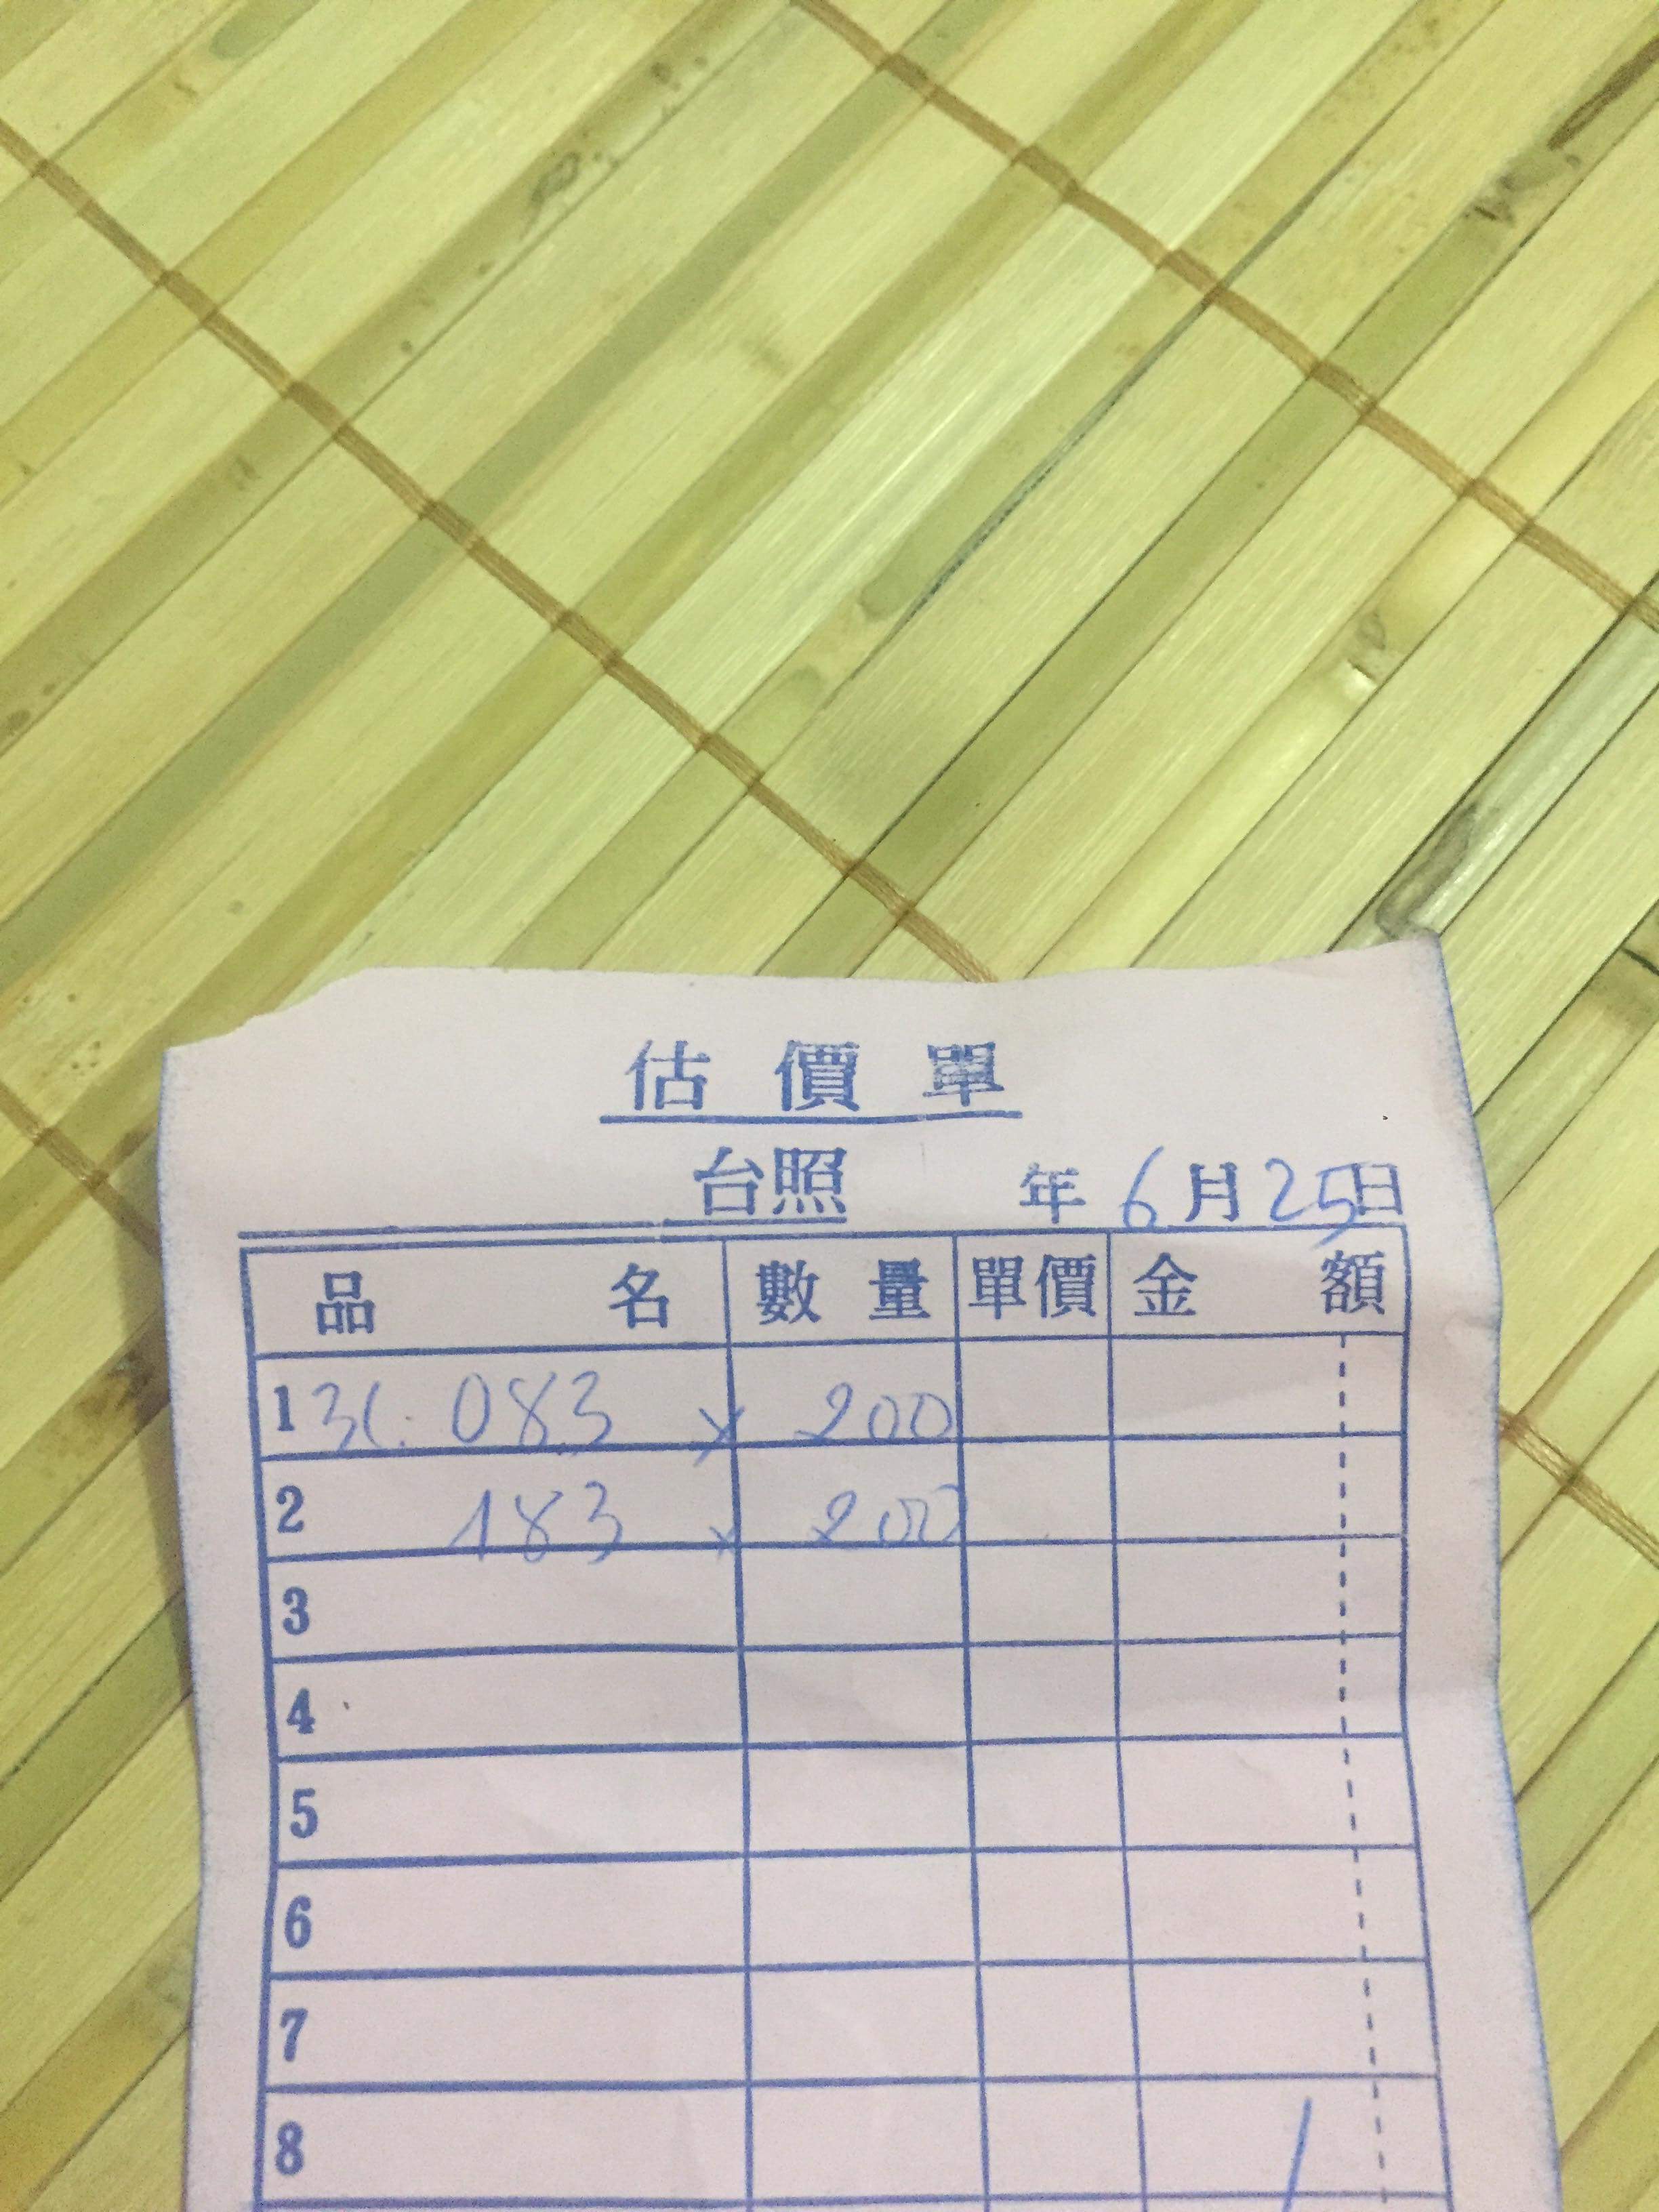 估價單
台照 年 6 月 25 日
品名 數量 單價 金額
1 3(. 083 × 200
2 183 × 200
3
4
5
6
7
8